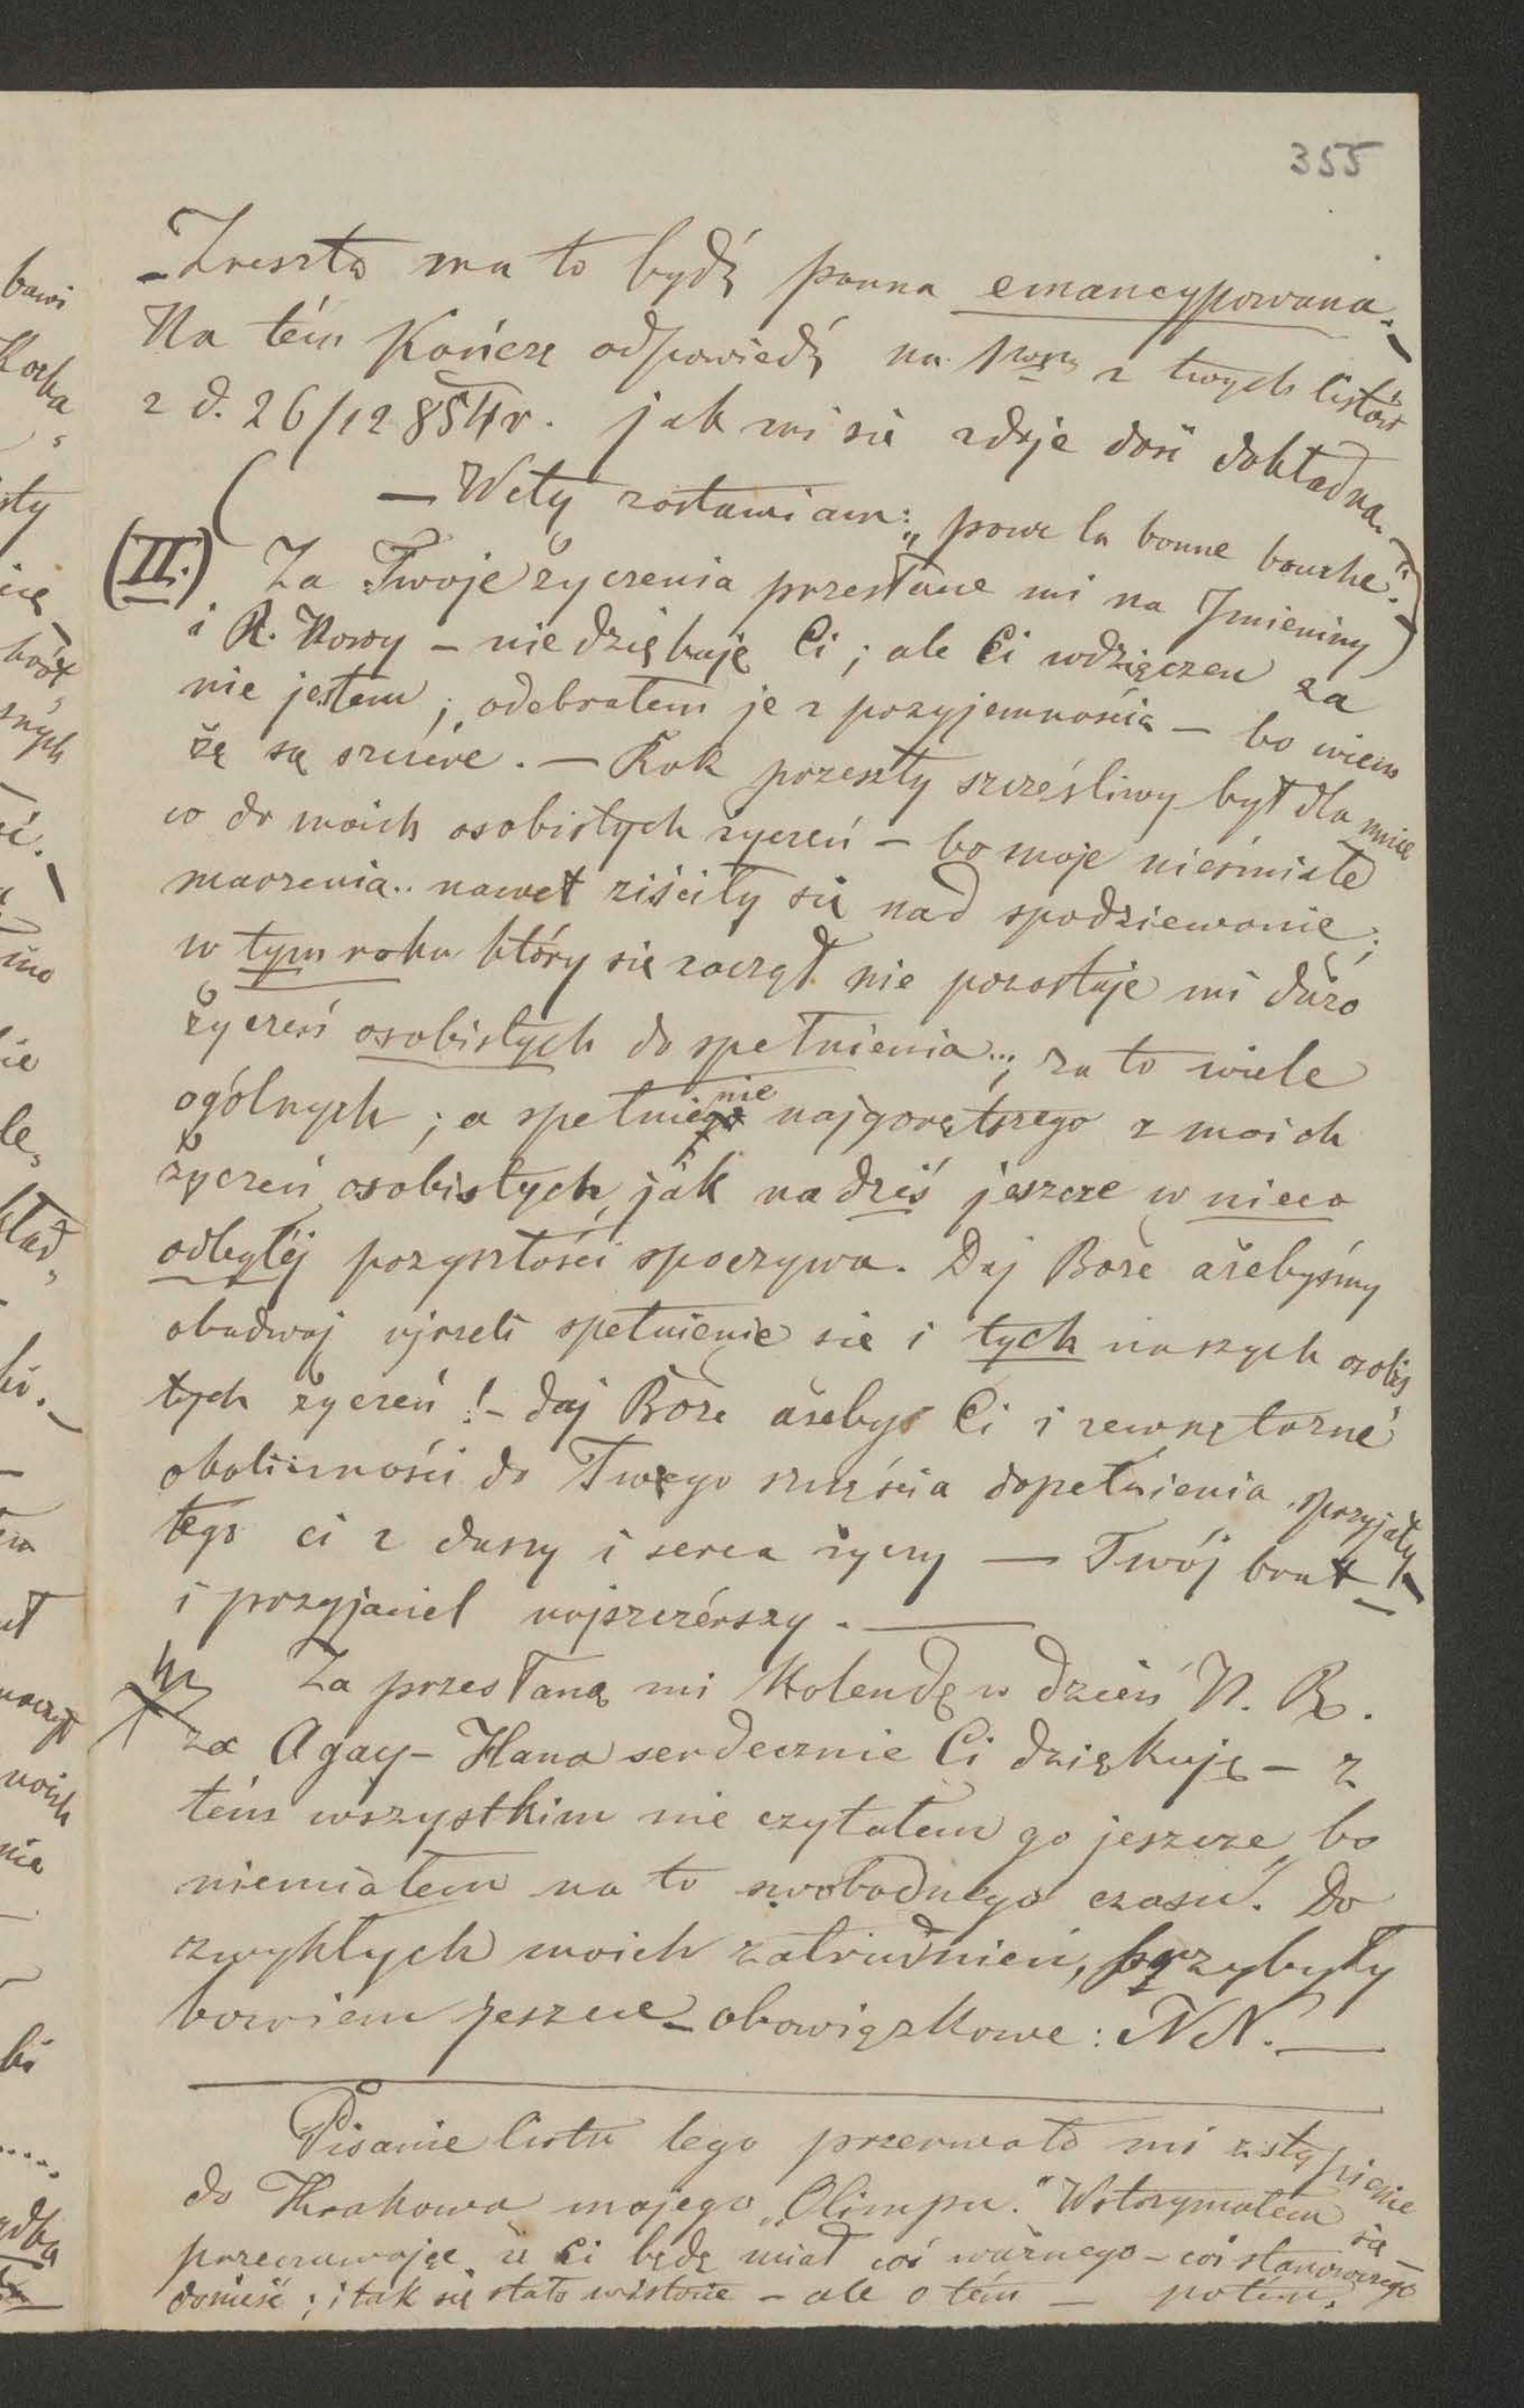 355
– Zresztą ma to bydź panna emancypowana. –
Na tém kończę odpowiedź na 1wszy z twych listów
z d. 26/12 854 r. jak mi się zdaje dosć dokładną. –
(– Wety zostawiam: „pour la bonne bouche.")
(II.) Za Twoje życzenia przesłane mi na Imieniny
i R. Nowy – nie dziękuję Ci; ale Ci wdzięczen za
nie jestem; odebrałem je z przyjemnością – bo wiem
że są szczére. – Rok przeszły szczęśliwy był dla mnie
co do moich osobistych życzeń – bo moje nieśmiałe
marzenia.. nawet ziściły się nad spodziewanie;
w tym roku który się zaczął nie pozostaje mi dużo
życzeń osobistych do spełnienia...; za to wiele
ogólnych; a spełnienie najgorętszego z moich
życzeń osobistych, jak na dziś jeszcze w nieco
odległéj przyszłości spoczywa. Daj Boże ażebyśmy
obadwaj ujrzeli spełnienie się i tych naszych osobis
tych życzeń! – daj Boże ażeby Ci i zewnętrzné
okoliczności do Twego szczęścia dopełnienia sprzyjały
tego ci z duszy i serca życzy — Twój brat –
i przyjaciel najszczérszy. —
Za przesłaną mi Kolendę w dzień N. R.
za Agay-Hana serdecznie Ci dziękuję – z
tém wszystkim nie czytałem go jeszcze, bo
niemiałem na to swobodnego czasu. Do
zwykłych moich zatrudnień, przybyły
bowiem jeszcze – obowiązkowe: NN. —
Pisanie listu tego przerwało mi zstąpienie
do Krakowa mojego „Olimpu." Wstrzymałem się –
przeczuwając że Ci będę miał coś ważnego – coś stanowczego
donieść; i tak się stało wistocie – ale o tém — potém.
bawi